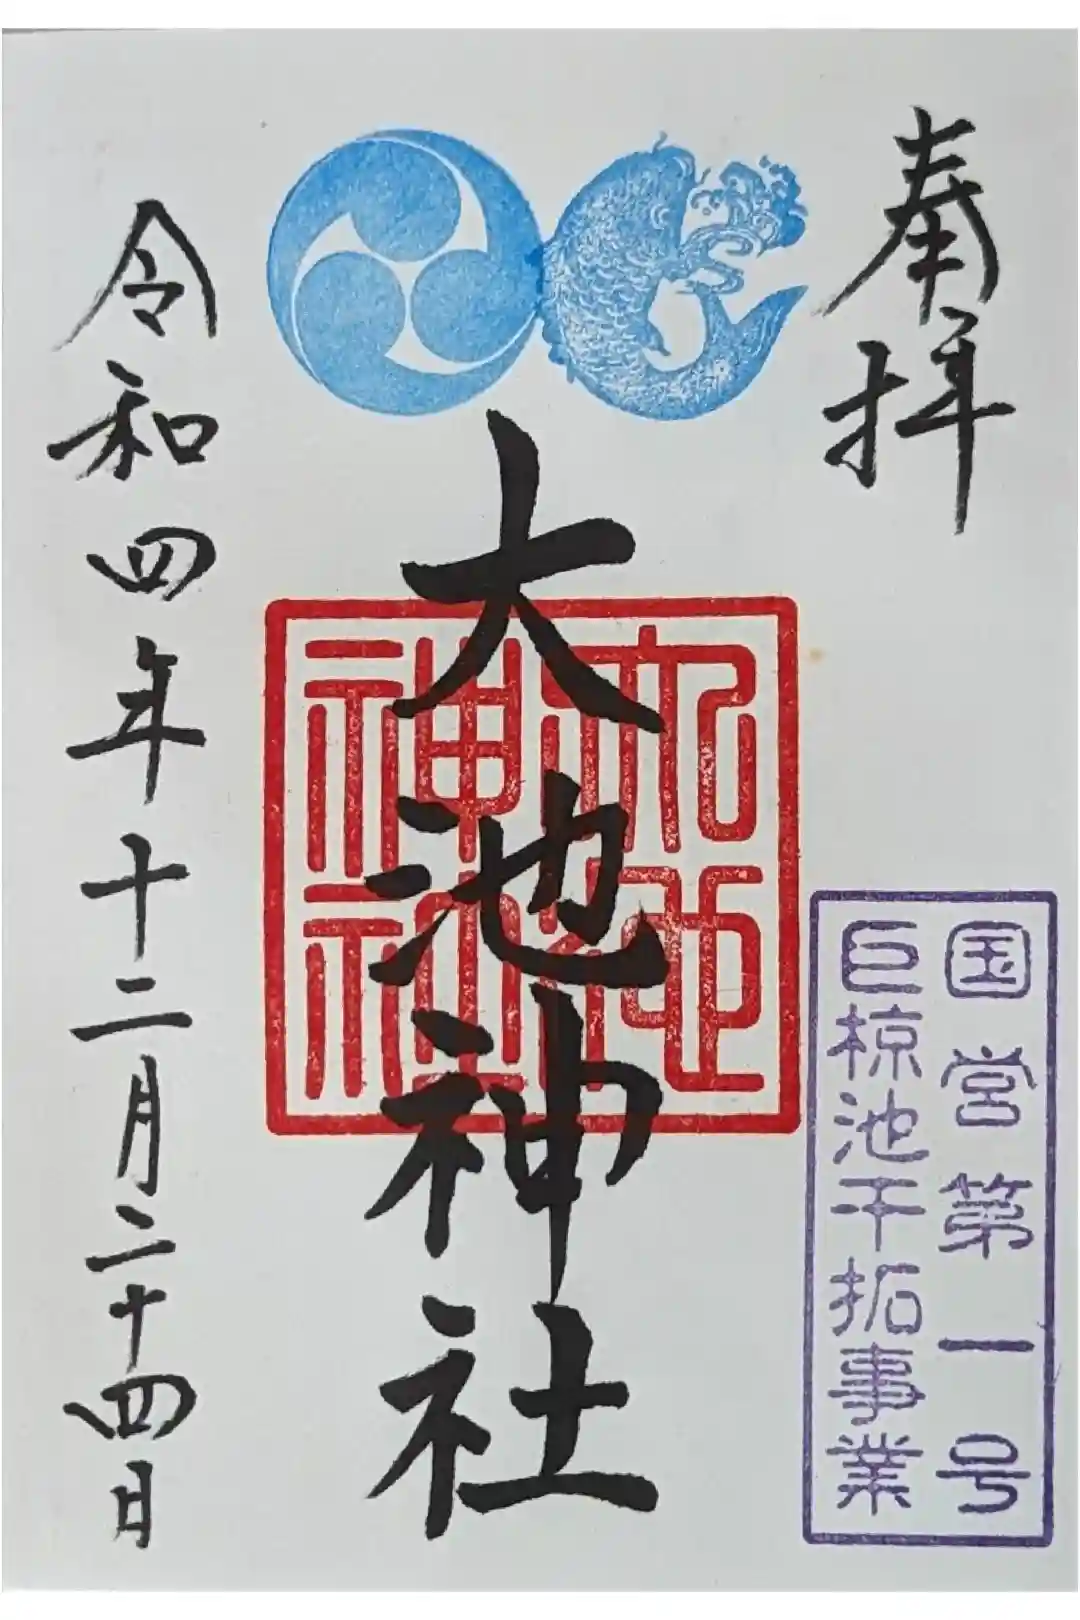 奉拝
国営第一号
巨椋池干拓事業
大池神社
大池
神社
令和四年十二月二十四日